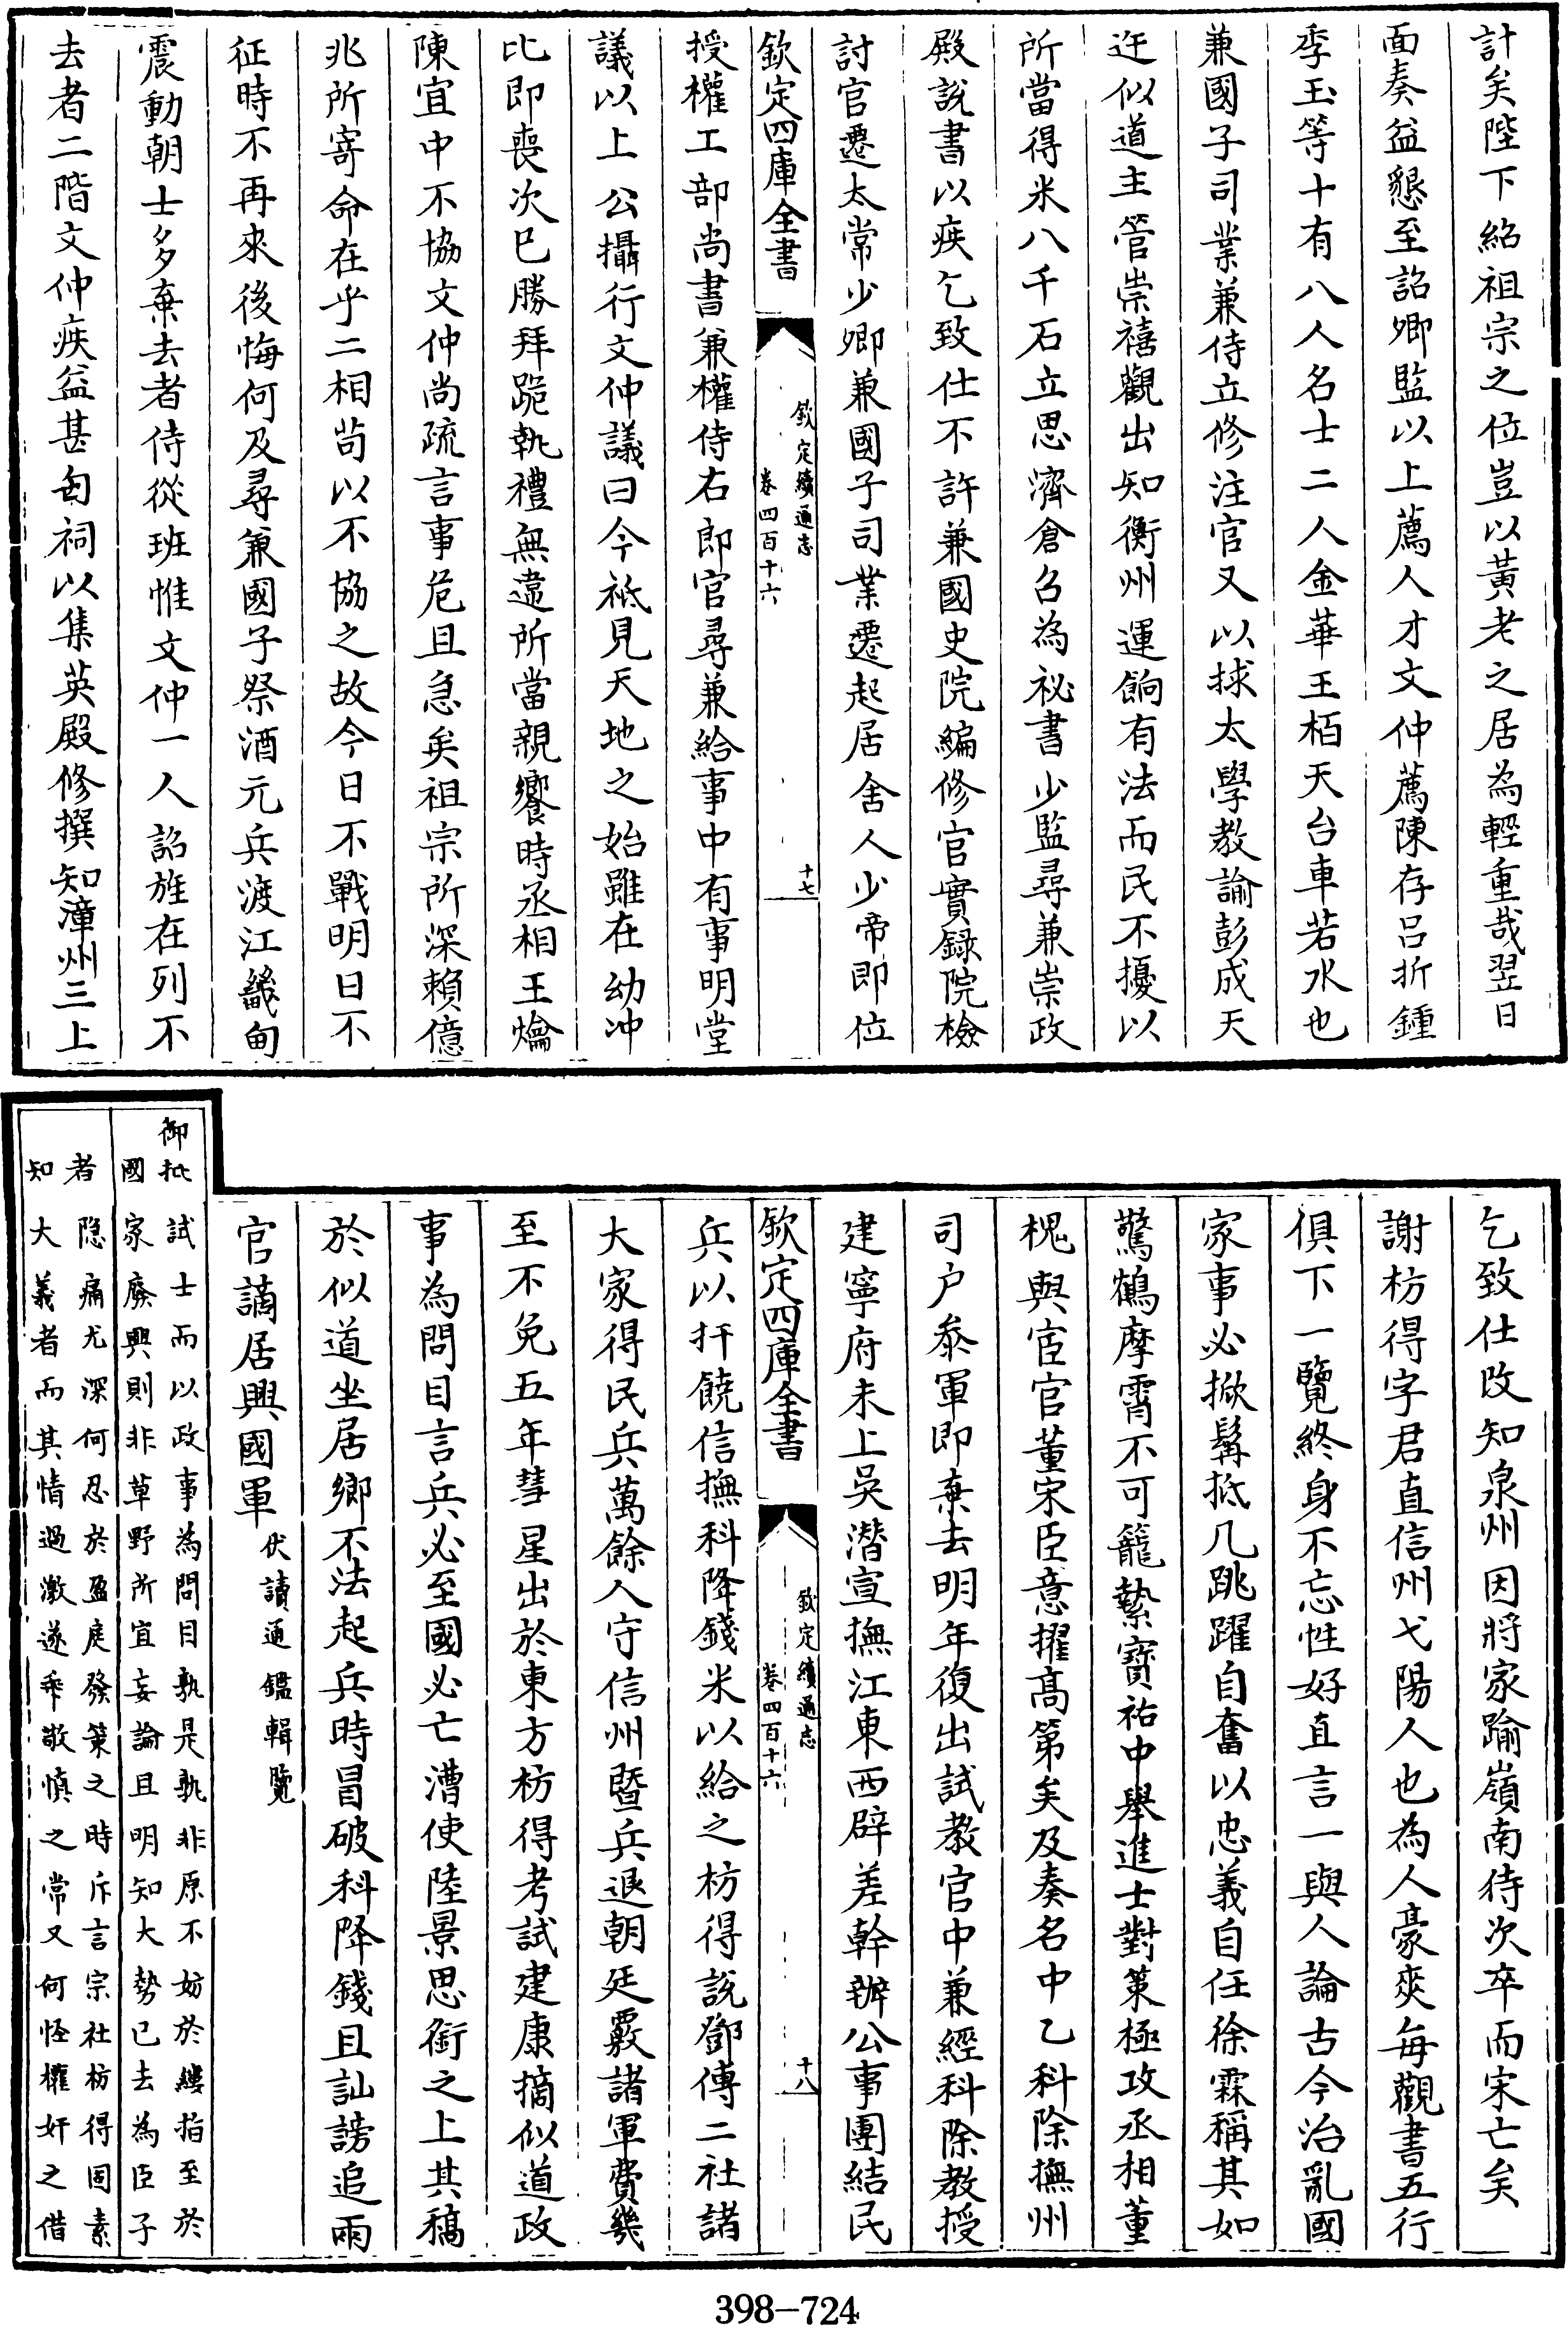 計矣陛下紹祖宗之位豈以黃老之居為輕重哉翌日
面奏益懇至詔卿監以上薦人才文仲薦陳存呂折鍾
季玉等十有八人名士二人金華王栢天台車若水也
兼國子司業兼侍立修注官又以捄太學教諭彭成天
迕似道主管崇禧觀出知衡州運餉有法而民不擾以
所當得米八千石立思濟倉召為祕書少監尋兼崇政
殿說書以疾乞致仕不許兼國史院編修官實錄院檢
討官遷太常少卿兼國子司業遷起居舍人少帝即位
欽定四庫全書
欽定續通志
卷四百十六
十七
授權工部尚書兼權侍右郎官尋兼給事中有事明堂
議以上公攝行文仲議曰今祗見天地之始雖在幼冲
比即喪次已勝拜跪執禮無違所當親饗時丞相王爚
陳宜中不協文仲尚疏言事危且急矣祖宗所深賴億
兆所寄命在乎二相苟以不協之故今日不戰明日不
征時不再來後悔何及尋兼國子祭酒元兵渡江畿甸
震動朝士多棄去者侍從班惟文仲一人詔旌在列不
去者二階文仲疾益甚匄祠以集英殿修撰知漳州三上
乞致仕改知泉州因將家踰嶺南待次卒而宋亡矣
謝枋得字君直信州弋陽人也為人豪爽每觀書五行
俱下一覽終身不忘性好直言一與人論古今治亂國
家事必掀髯抵几跳躍自奮以忠義自任徐霖稱其如
驚鶴摩霄不可籠縶寶祐中舉進士對策極攻丞相董
槐與宦官董宋臣意擢高第矣及奏名中乙科除撫州
司户叅軍即棄去明年復出試教官中兼經科除教授
建寧府未上吳潛宣撫江東西辟差幹辦公事團結民
欽定四庫全書
欽定續通志
卷四百十六
十八
兵以扞饒信撫科降錢米以給之枋得說鄧傅二社諸
大家得民兵萬餘人守信州暨兵退朝廷覈諸軍費幾
至不免五年彗星出於東方枋得考試建康摘似道政
事為問目言兵必至國必亡漕使陸景思銜之上其稿
於似道坐居鄉不法起兵時冒破科降錢且訕謗追兩
官謫居興國軍伏讀通鑑輯覽
御批試士而以政事為問目孰是孰非原不妨於縷指至於
國家廢興則非草野所宜妄論且明知大勢已去為臣子
者隱痛尤深何忍於盈庭發策之時斥言宗社枋得固素
知大義者而其情過激遂乖敬慎之常又何怪權奸之借
398-724